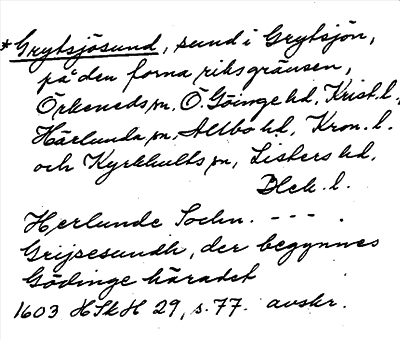 *Grytsjösund, sund i Grytsjön,
på den forna riksgränsen,
Örkeneds sn, Ö. Göinge hd, Krist. l.,
Härlunda sn, Allbo hd, Kron. l.
och Kyrkhults sn, Listers hd,
Blek. l.
Herlunde Sochn. - - - .
Grijsesundh, der begynnes
Gödinge häradt
1603 HSkH 29, s. 77. avskr.